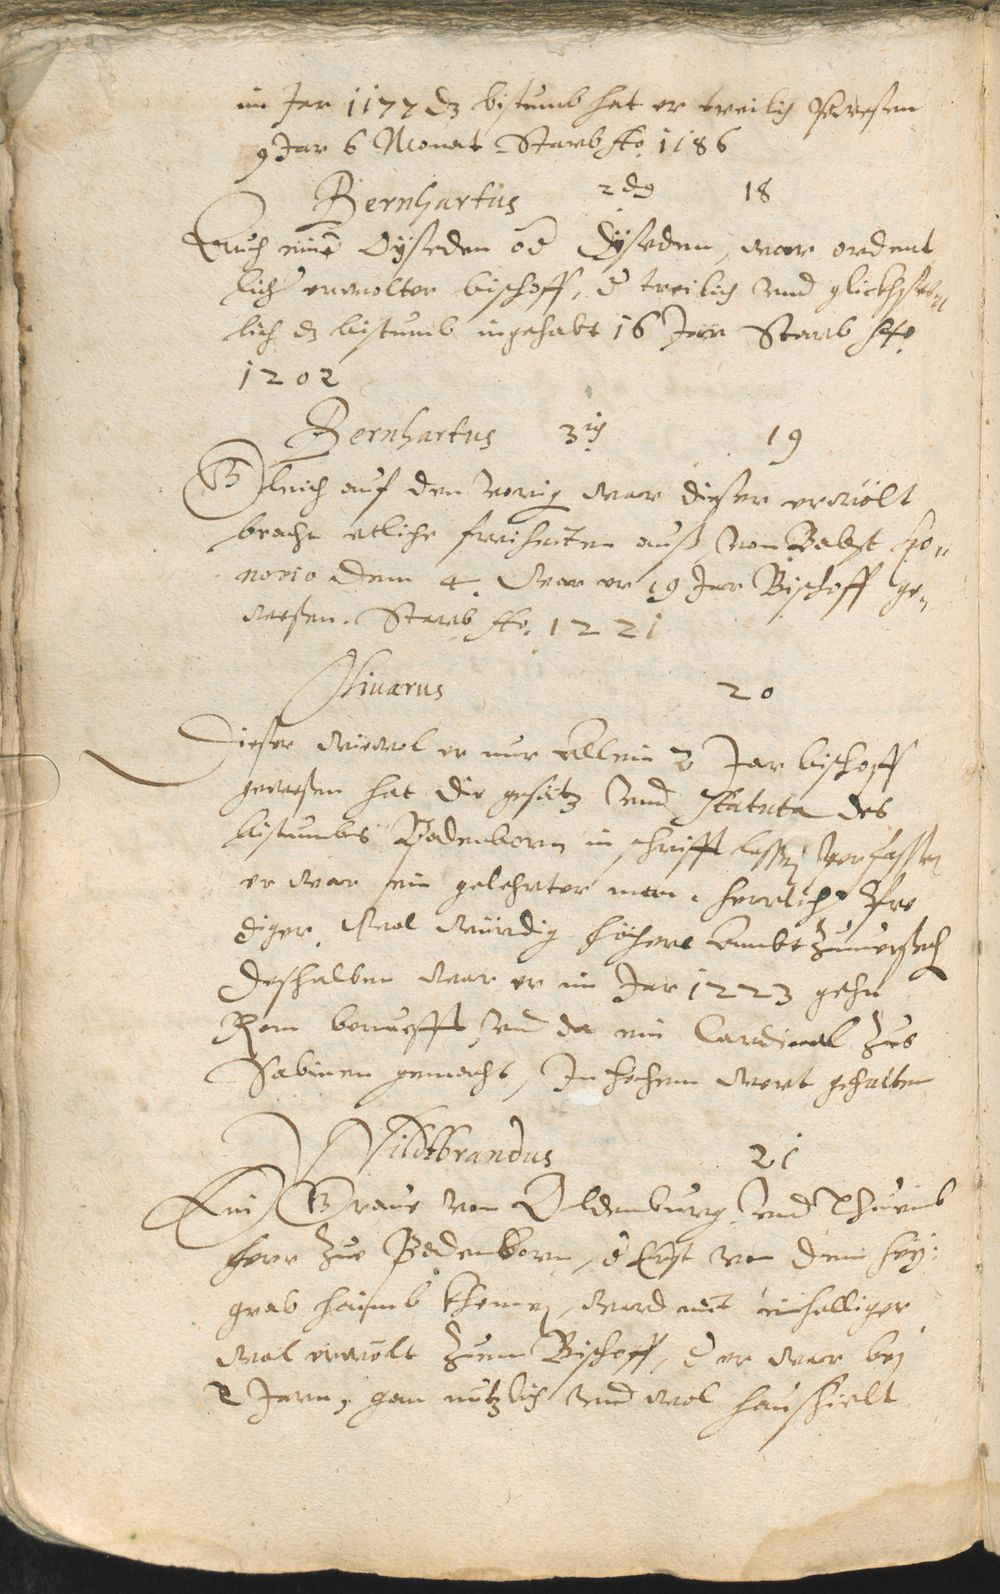 im Jar 1177 dz bistumb hat er treilich
9 Jar 6 Monat Starb Ao. 1186
Bernhartus 2dg 18
Auch eine Oÿseden od Ÿseden, war ordent
lich erwolter bischoff, d treilich vnd glickhse-
lich dz bistumb ingehabt 16 Jar Starb Ao.
1202
Bernhartus 3ig 19
Gleich auf den vorig war dieser erwölt
bracht etliche freiheiten auß von Babst Ho„
norio dem 4. War er 19 Jar Bischoff ge„
wesen. Starb Ao. 1221
Oliuarus 20
Dieser wiewol er nur allein 2 Jar bischoff
gewesen hat die gesätz vnd Statuta des
bistumbs Padenborn in schrifft lassen verfassen
er war ein gelehrter man. herrlicher Pre
diger. Wol würdig höhere Embt
deshalben war er im Jar 1223 gehn
Rom berueft vnd da ein Cardinal zue
Sabinen gemacht, In hohem wert gehalten
Wildtbrandus 21
Ein Graue von Oldenburg vnd Thuemb
herr zue Padenborn, d Erst von dem heÿ:
grab haimb khomen, ward mit einhelliger
wal erwölt zum Bischoff, d er war beÿ
2 Jarn, gar nutzlich vnd wol haushielt